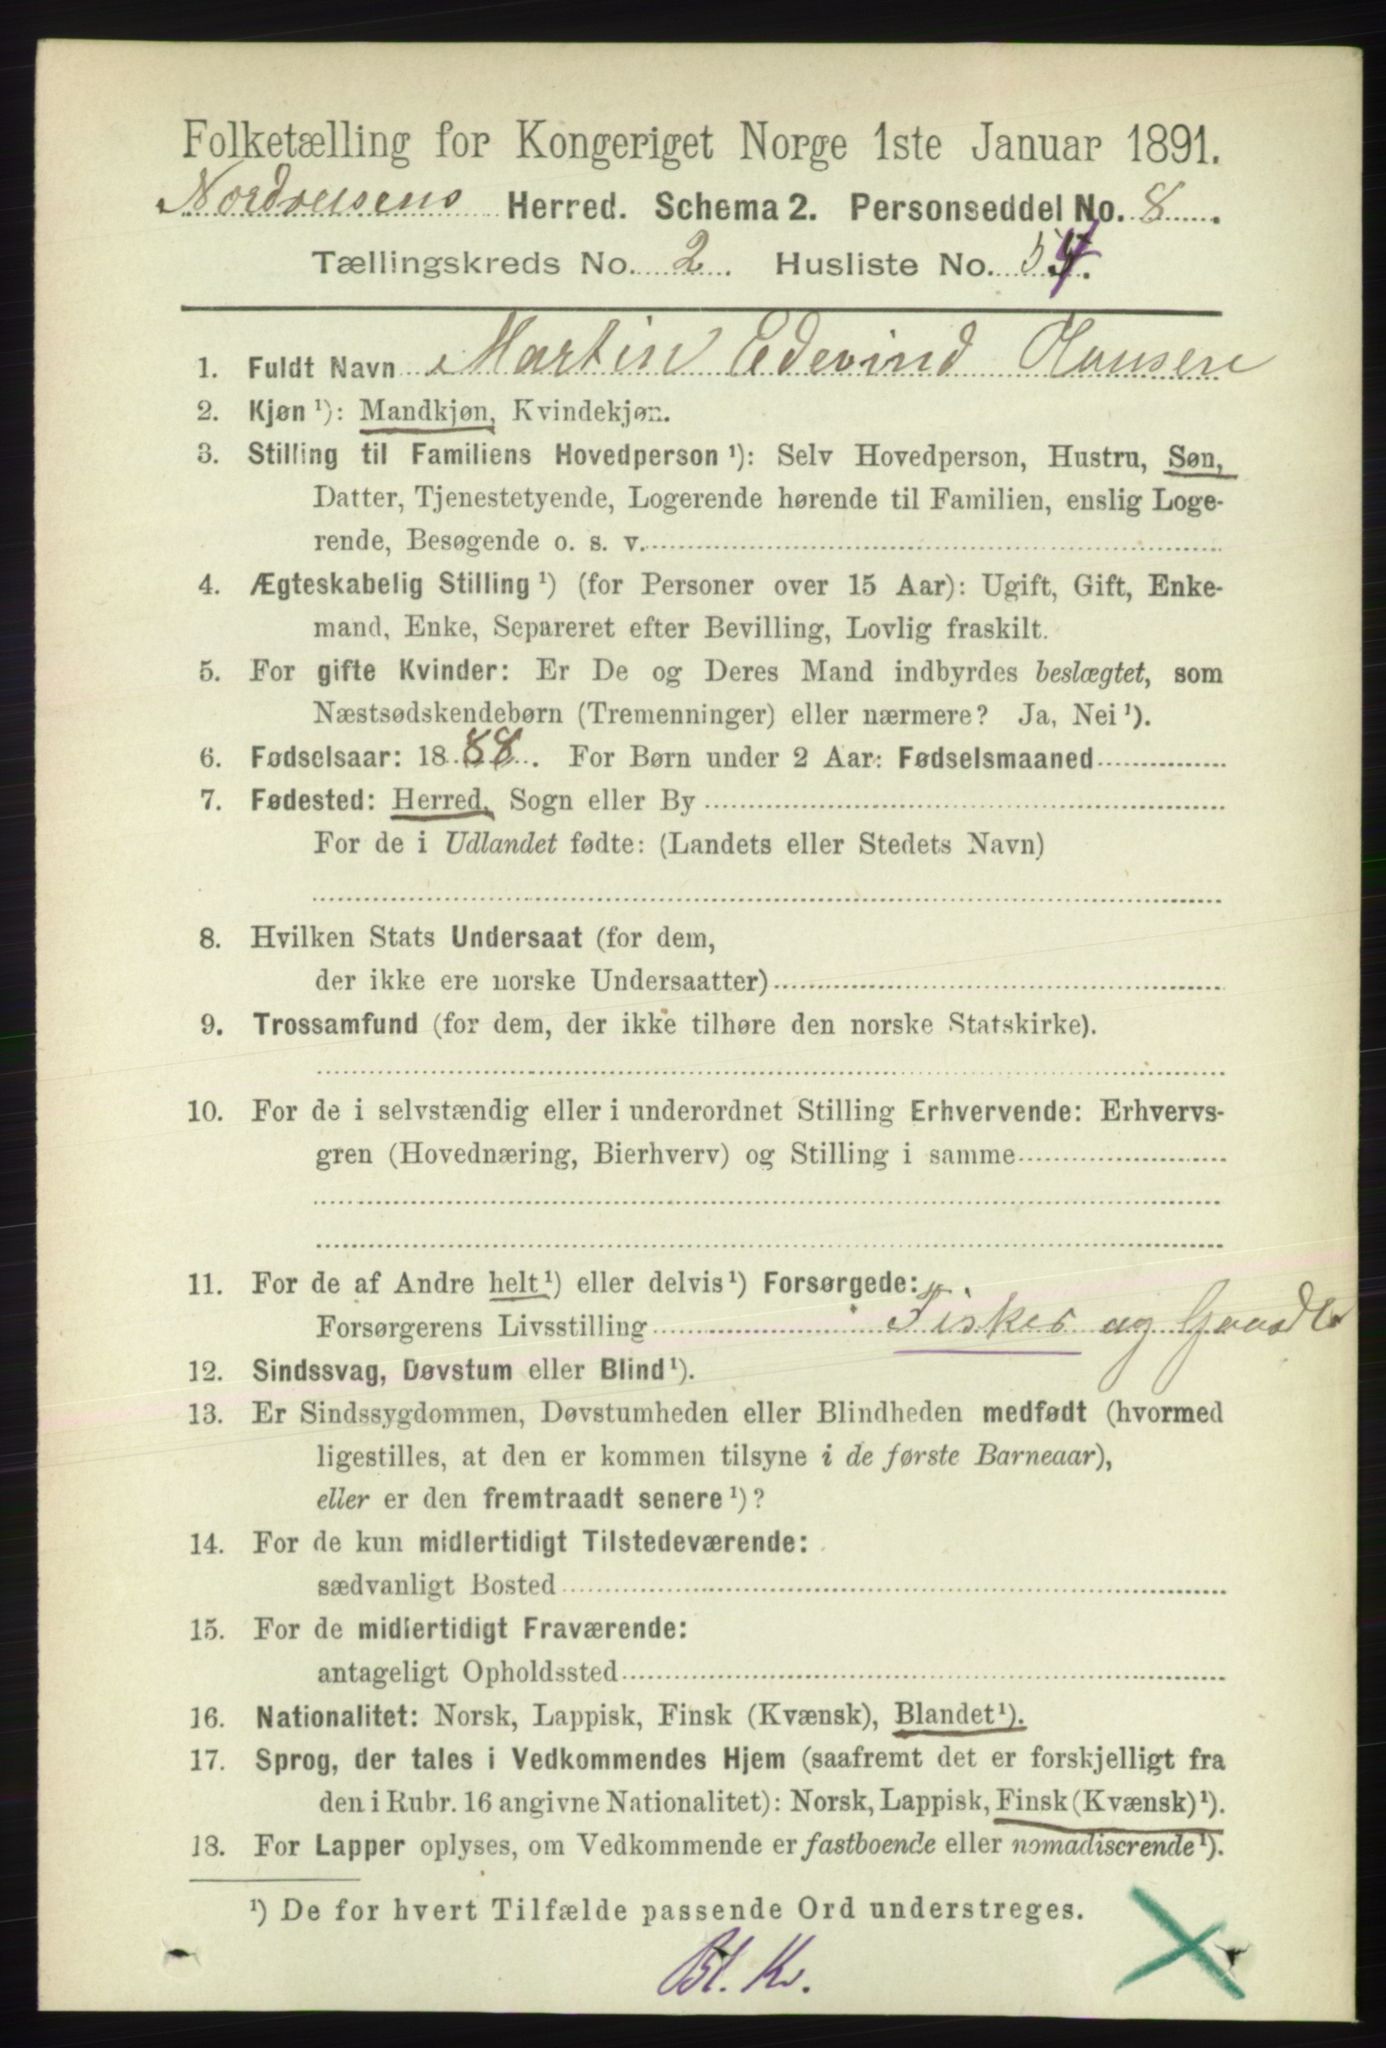 Folketælling for Kongeriget Norge 1ste Januar 1891.
Nordreisens Herred. Schema 2. Personseddel No. 8.
Tællingskreds No. 2. Husliste No. 54.
1. Fuldt Navn Martin Edevind Hansen
2. Kjøn ¹): Mandkjøn, Kvindekjøn.
3. Stilling til Familiens Hovedperson ¹): Selv Hovedperson, Hustru, Søn,
Datter, Tjenestetyende, Logerende hørende til Familien, enslig Loge-
rende, Besøgende o. s. v.
4. Ægteskabelig Stilling ¹) (for Personer over 15 Aar): Ugift, Gift, Enke-
mand, Enke, Separeret efter Bevilling, Lovlig fraskilt.
5. For gifte Kvinder: Er De og Deres Mand indbyrdes beslægtet, som
Næstsødskendebørn (Tremenninger) eller nærmere? Ja, Nei ¹).
6. Fødselsaar: 1888. For Børn under 2 Aar: Fødselsmaaned
7. Fødested: Herred, Sogn eller By
For de i Udlandet fødte: (Landets eller Stedets Navn)
8. Hvilken Stats Undersaat (for dem,
der ikke ere norske Undersaatter)
9. Trossamfund (for dem, der ikke tilhøre den norske Statskirke).
10. For de i selvstændig eller i underordnet Stilling Erhvervende: Erhvervs-
gren (Hovednæring, Bierhverv) og Stilling i samme
11. For de af Andre helt ¹) eller delvis ¹) Forsørgede:
Forsørgerens Livsstilling Fisker og
12. Sindssvag, Døvstum eller Blind ¹).
13. Er Sindssygdommen, Døvstumheden eller Blindheden medfødt (hvormed
ligestilles, at den er kommen tilsyne i de første Barneaar),
eller er den fremtraadt senere ¹)?
14. For de kun midlertidigt Tilstedeværende:
sædvanligt Bosted
15. For de midlertidigt Fraværende:
antageligt Opholdssted
16. Nationalitet: Norsk, Lappisk, Finsk (Kvænsk), Blandet ¹).
17. Sprog, der tales i Vedkommendes Hjem (saafremt det er forskjelligt fra
den i Rubr. 16 angivne Nationalitet): Norsk, Lappisk, Finsk (Kvænsk) ¹).
18. For Lapper oplyses, om Vedkommende er fastboende eller nomadiserende ¹).
¹) De for hvert Tilfælde passende Ord understreges.
Bl. Kv.